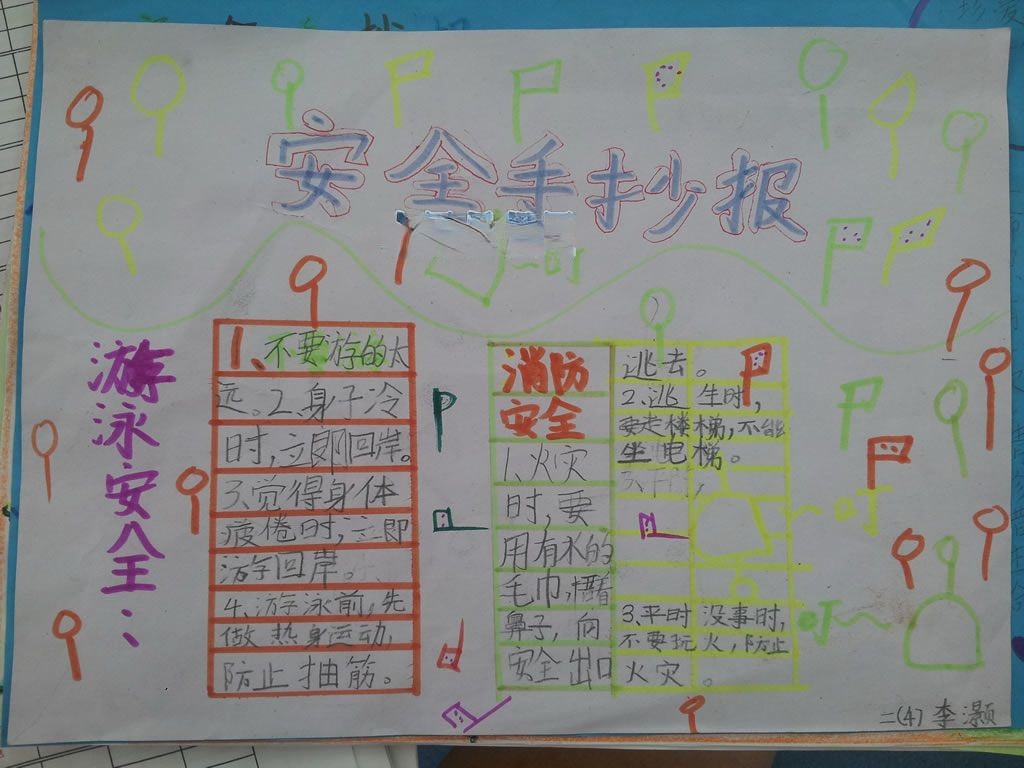 安全手抄报
~叮
游泳安全：
1、不要游的太
远。2.身子冷
时，立即回岸。
3.觉得身体
疲倦时，立即
游回岸。
4.游泳前，先
做热身运动，
防止抽筋。
消防
安全
1.火灾
时，要
用有水的
毛巾，捂着
鼻子，向
安全出口
逃去。
2.逃生时，
要走楼梯，不能
坐电梯。
~叮
3.平时没事时，
不要玩火，防止
火灾。
叮~
二(4)李灏